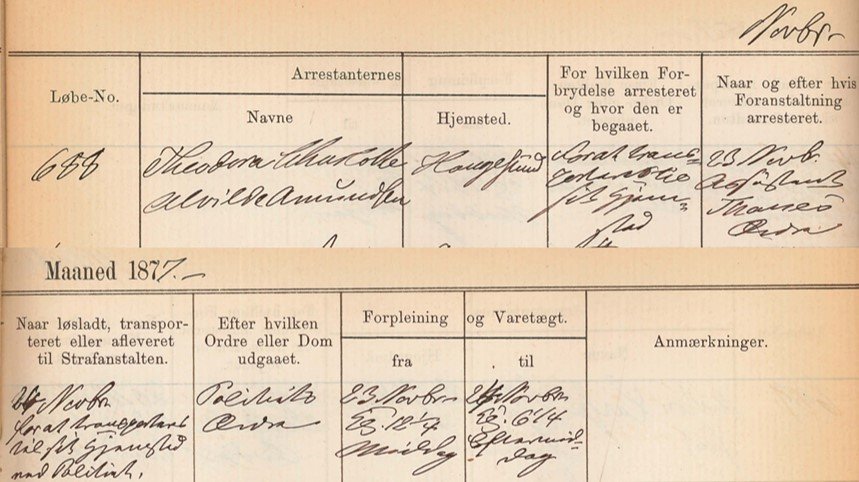 Novbr.
Løbe-No.
Arrestanternes
Navne
Hjemsted.
For hvilken For-
brydelse arresteret
og hvor den er
begaaet.
Naar og efter hvis
Foranstaltning
arresteret.
688
Theodora Charlotte
Alvilde Amundsen
Haugesund
for at trans-
porteres til
sit Hjem-
stad
23 Novbr.
Assistent
Ordre
Maaned 1877.
Naar løsladt, transpor-
teret eller afleveret
til Strafanstalten.
Efter hvilken
Ordre eller Dom
udgaaet.
Forpleining
fra
og Varetægt.
til
Anmærkninger.
24 Novbr
for at transporteres
til sit Hjemsted
ved Politiet.
Politiets
Ordre
23 Novbr.
Kl. 12 1/4
Middag
24 Novbr.
Kl. 6 1/4
Eftermid-
dag